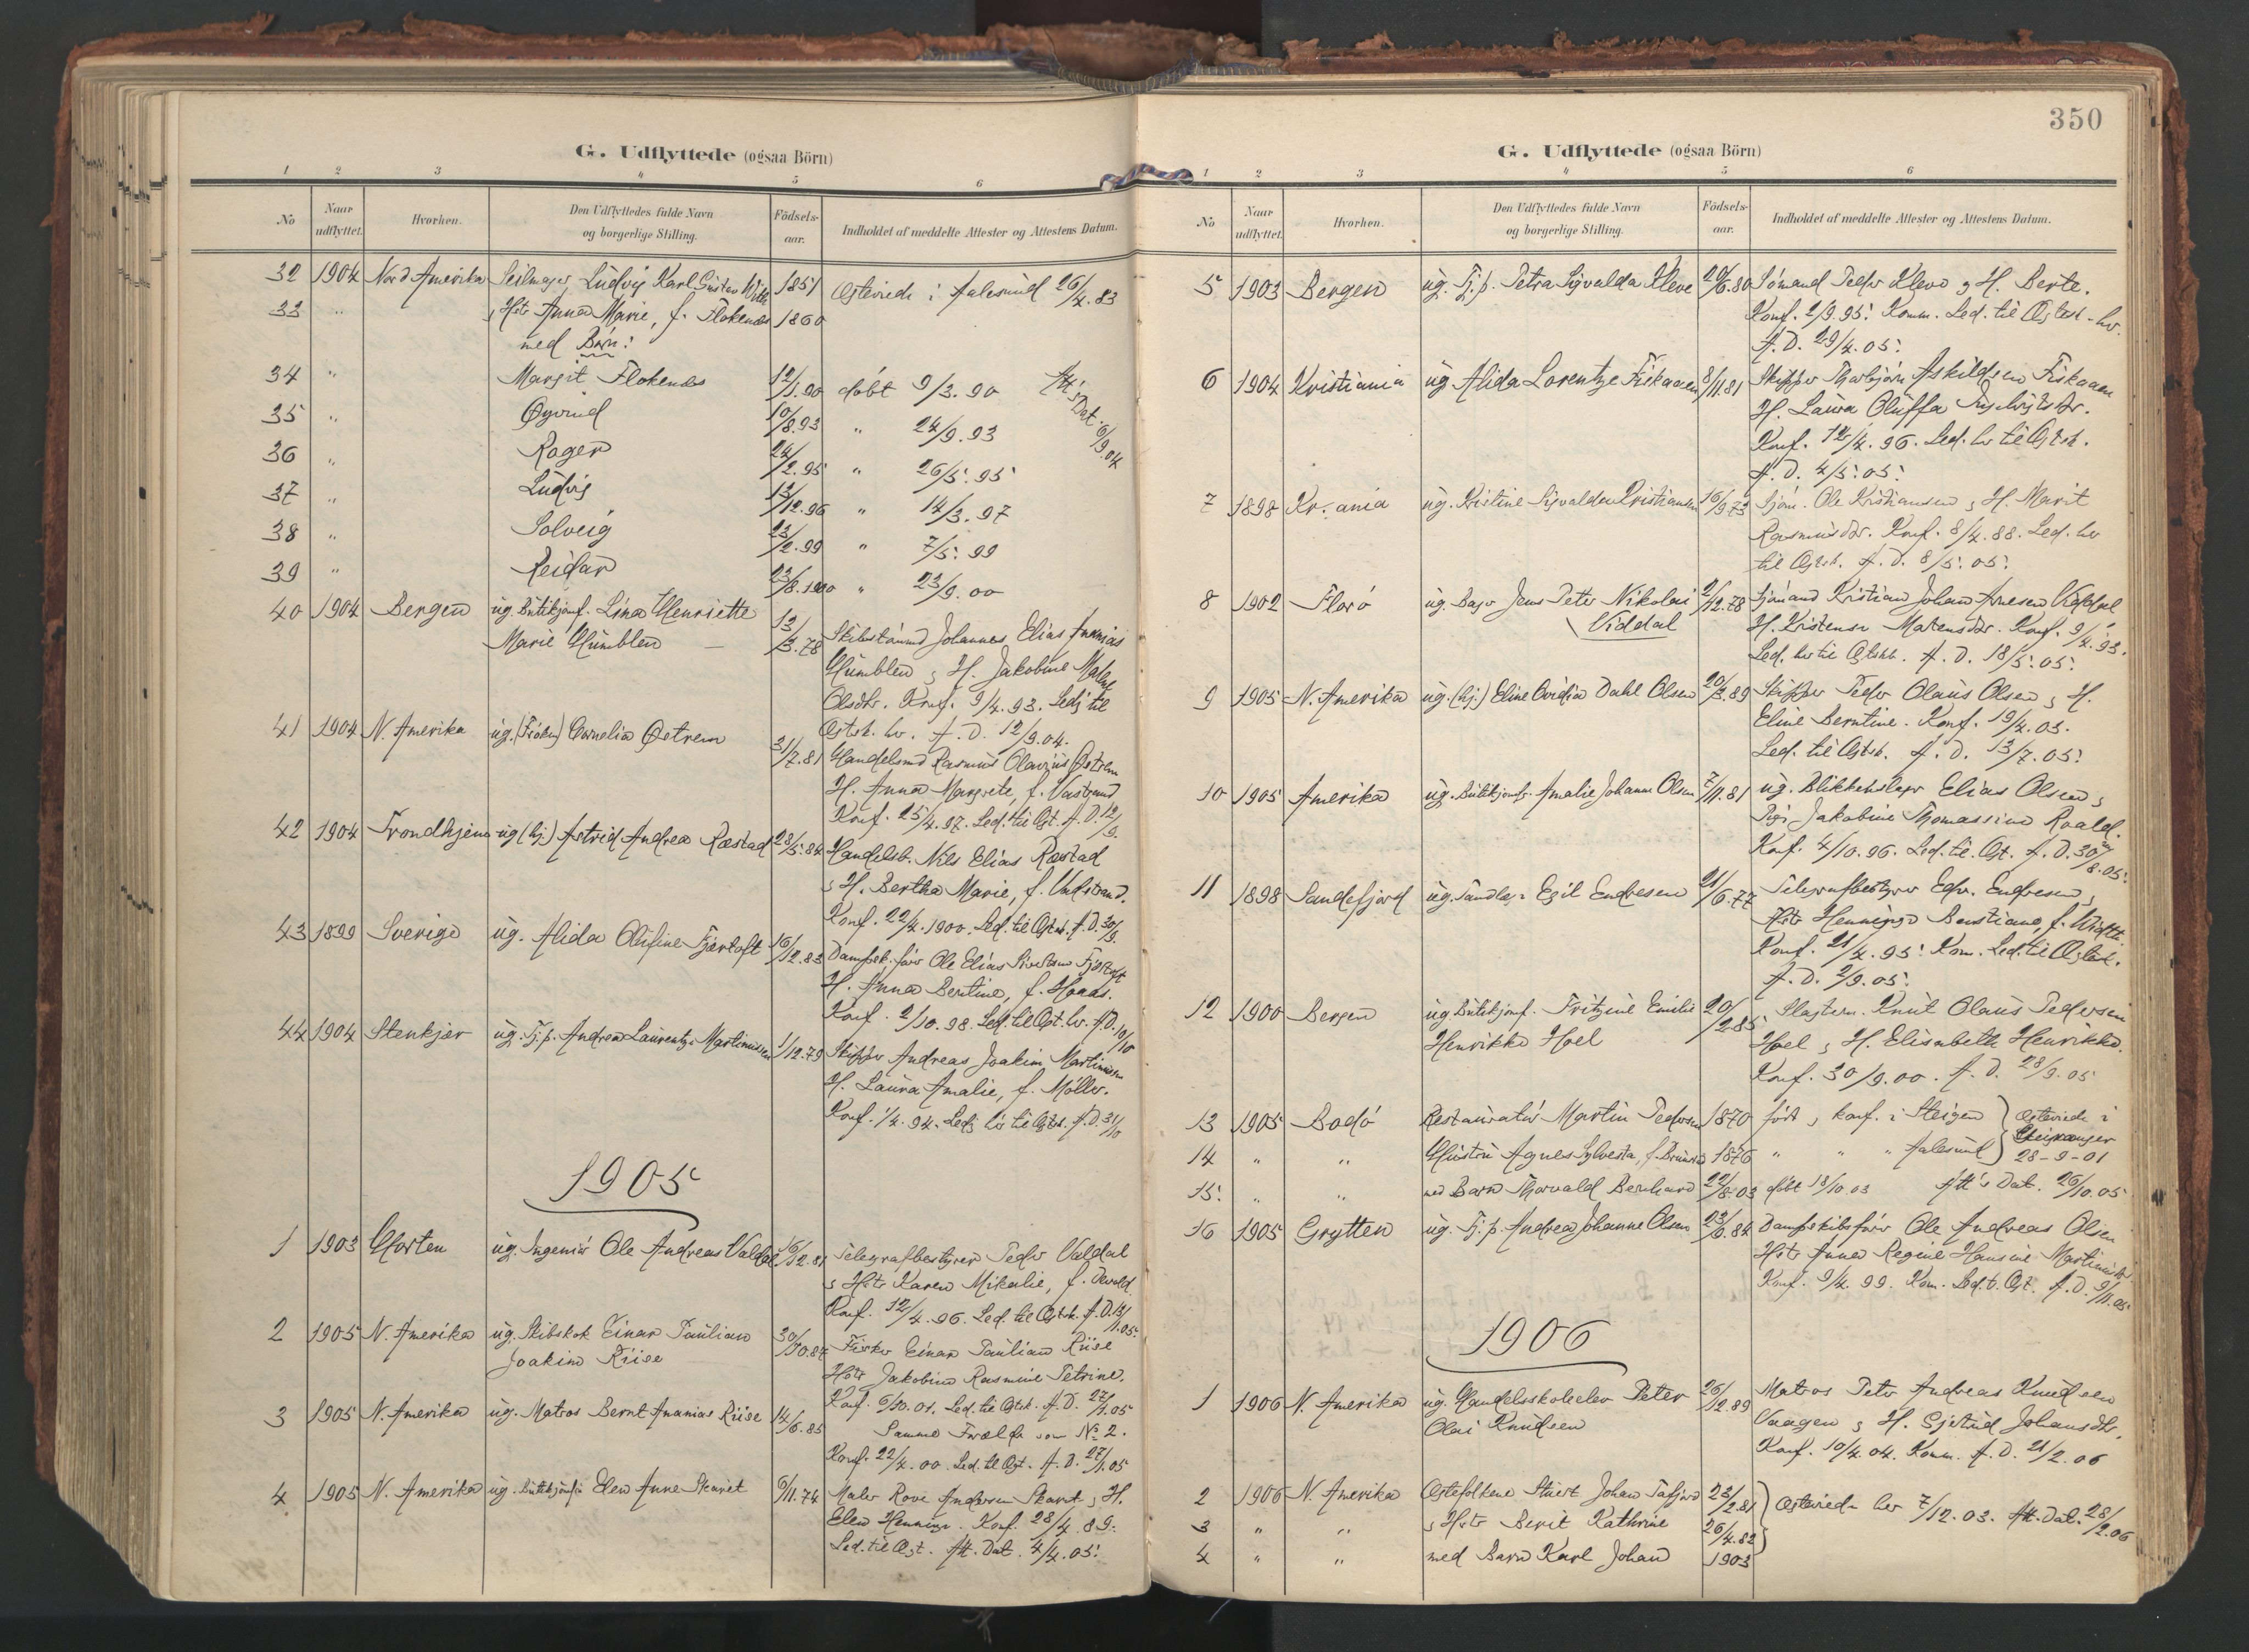 G. Udflyttede (ogsaa Börn)
1 2 3 4 5 6
No Naar udflyttet. Hvorhen. Den Udflyttedes fulde Navn og borgerlige Stilling. Födsels-aar. Indholdet af meddelte Attester og Attestens Datum.
32 1904 Nord Amerika Seilmager Ludvig Karl Gustav 1851 Egteviede i Aalesund 26/4.83
33 " Hstr Anna Marie, f. Flokenes 1860
med Børn:
34 " Margit Flokenes 12/1.90 døbt 9/3.90 Att's Dat. 6/9.04
35 " Øyvind 10/8.93 " 24/9.93
36 " Roger 24/2.95 " 26/5.95
37 " Ludvig 13/12.96 " 14/3.97
38 " Solveig 23/2.99 " 7/5.99
39 " Reidar 23/8.1900 " 23/9.00
40 1904 Bergen ug. Butikjomf. Lina Henriette 13/3.78 Skibstømmd Johannes Elias Ananias
Marie Humblen Humblen & H. Jakobine
Olsdtr. Konf. 9/4.93. Ledig til
Egtsk. hr. A.D. 12/9.04.
41 1904 N. Amerika ug. (Frøken) Cornelia Østrem 31/7.81 Handelsmd Rasmus Olavius Østrem
H. Anna Margrete, f. Vastrand
Konf. 25/4.97. Led. til Egt. A.D. 12/9.
42 1904 Trondhjem ug (hj.) Astrid Andrea Ræstad 28/5.84 Handelsb. Nils Elias Ræstad
& H. Bertha Marie, f.
Konf. 22/4.1900. Led. til Egtsk. A.D. 30/9.
43 1899 Sverige ug. Alida Olufine Fjærtoft 16/12.83 Dampsk. fører Ole Elias Sivertsen Fjørtoft
H. Anna Bertine, f. Haaas.
Konf. 2/10.98. Led. til Egt. hr. A.D. 10/10
44 1904 Stenkjær ug. Tj.p. Andrea Laurentze Martinussen 1/12.79 Skipper Andreas Joakim Martinussen
H. Laura Amalie, f. Möller.
Konf. 1/4.94. Ledig hr til Egtsk. A.D. 31/10
1905
1 1903 Horten ug. Ingeniør Ole Andreas Valdal 16/12.81 Telegrafbestyrer Peder Valdal
& Hstr Karen Mikalie, f. Devold.
Konf. 12/4.96. Led. til Egtsk. A.D. 13/1.05.
2 1905 N. Amerika ug. Skibskok Einar Paulian 30/10.87 Fisker Einar Paulian Riise
Joakim Riise Hstr Jakobine Rasmine Petrine.
Konf. 6/10.01. Led. til Egtsk. A.D. 27/1.05
3 1905 N. Amerika ug. Matros Bernt Ananias Riise 14/6.85 Samme Forældr som No 2.
Konf. 22/4.00. Led. til Egt. A.D. 27/1.05
4 1905 N. Amerika ug. Butikjomfr Elen Anne Skaret 6/11.74 Maler Rove Andersen Skaret & H.
Elen Henninge. Konf. 28/4.89.
Led. til Egt. Att. Dat. 4/4.05.
350
G. Udflyttede (ogsaa Börn)
1 2 3 4 5 6
No Naar udflyttet. Hvorhen. Den Udflyttedes fulde Navn og borgerlige Stilling. Födsels-aar. Indholdet af meddelte Attester og Attestens Datum.
5 1903 Bergen ug. Tj.p. Petra Sigvalda Kleve 20/6.80 Sømand Peder Kleve & H. Berte.
Konf. 2/9.95. Komm. Led. til Egtesk. hr.
A.D. 29/4.05.
6 1904 Kristiania ug Alida Lorentze Fiskaaen 8/11.81 Skipper Thorbjørn Askildsen Fiskaaen
H. Laura Oluffa
Konf. 12/4.96. Led. hr til Egtsk.
A.D. 4/5.05.
7 1898 Kr.ania ug. Kristine Sigvalda Kristiansen 16/9.73 Sjøm. Ole Kristiansen & H. Marit
Rasmusdtr. Konf. 8/4.88. Led. hr
til Egtsk. A.D. 8/5.05.
8 1902 Florø ug. Bager Jens Peter Nikolai 2/12.78 Sjømand Kristian Johan Arnesen Viddal
Viddal H. Kristense Matensdtr. Konf. 9/4.93.
Led. hr til Egtsk. A.D. 18/5.05.
9 1905 N. Amerika ug. (hj.) Eline Ovidia Dahl Olsen 20/3.89 Skipper Peder Olaus Olsen & H.
Eline Berntine. Konf. 19/4.03.
Led. til Egtsk. A.D. 13/7.05.
10 1905 Amerika ug. Butikjomfr. Amalie Johanne Olsen 7/11.81 ug. Blikkenslager Elias Olsen &
Pige Jakobine Thomassine Roald.
Konf. 4/10.96. Led. til Egt. A.D. 30/8.05.
11 1898 Sandefjord ug. Tandlæge Egil Endresen 21/6.77 Telegrafbestyrer Edv. Endresen &
Hstr Henninge Benstiane, f.
Konf. 21/4.95. Kom. Led. til Egtesk.
A.D. 2/9.05.
12 1900 Bergen ug. Butikjomf. Fritzine Emilie 20/2.85 Pladsm. Knut Olaus Pedersen
Henrikke Hoel Hoel & H. Elisabeth Henrikke.
Konf. 30/9.00. A.D. 28/9.05
13 1905 Bodø Restauratør Martin Pedersen 1870 født & konf. i Steigen Egteviede i
14 " " Hustru Agnes Sylvesta, f. 1876 " " " Aalesund 28-9-01
15. " " med Barn Thorvald Bernhard 22/8.03 døbt 18/10.03 Att's Dat. 26/10.05
16 1905 Grytten ug. Tj.p. Andrea Johanne Olsen 23/6.84 Dampskibsfører Ole Andreas Olsen
Hstr Anna Regine Hansine Martinusdtr.
Konf. 9/4.99. Kom. Led. t. Egt. A.D. 9/11.05
1906
1 1906 N. Amerika ug. Handelsskoleelev Peter 26/12.89 Matros Peter Andreas Knudsen
Olai Knudsen Vaagen & H. Gjertrud Johansdtr.
Konf. 10/4.04. Komm. A.D. 21/2.06
2 1906 N. Amerika Egtefolkene Stuert Johan Tafjord 23/2.81 Egteviede her 7/12.03. Att. Dat. 28/2.06
3 " " & Hstr Berit Kathrine 26/4.82
4 " " med Barn Karl Johan 1903